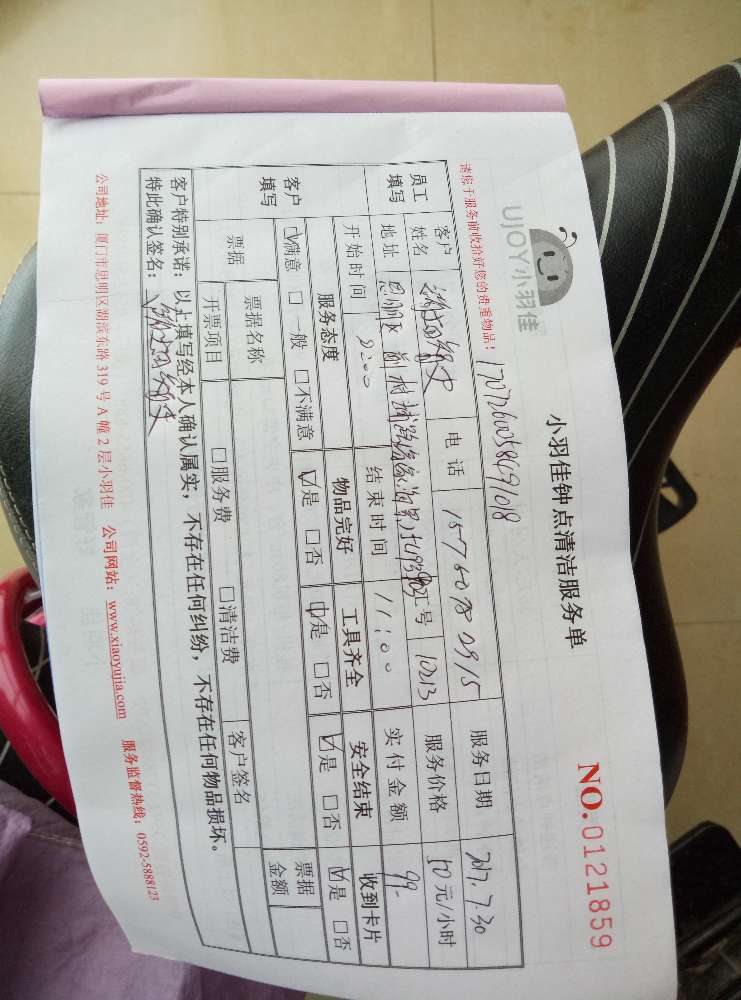 UJOY小羽佳
小羽佳钟点清洁服务单
NO.0121859
请您于服务前收拾好您的贵重物品！
员工填写 客户姓名 电话 15760780915 服务日期 2017.7.30
地址 工号 1023 服务价格 50元/小时
开始时间 结束时间 11:00 实付金额 99-
客户填写 服务态度 物品完好 工具齐全 安全结束 收到卡片
☑满意 □一般 □不满意 ☑是 □否 ☑是 □否 ☑是 □否 ☑是 □否
票据 票据名称 客户签名 票据金额
开票项目 □服务费 □清洁费
客户特别承诺：以上填写经本人确认属实，不存在任何纠纷，不存在任何物品损坏。
特此确认签名：
公司地址：厦门市思明区湖滨东路 319 号 A 幢 2 层小羽佳 公司网站：www.xiaoyujia.com 服务监督热线：0592-5888123